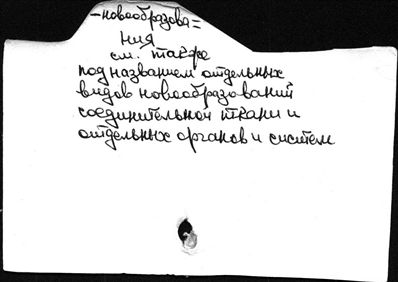 -новообразова=
ния
см. также
под названием отдельных
видов новообразований
соединительной ткани и
отдельных органов и систем